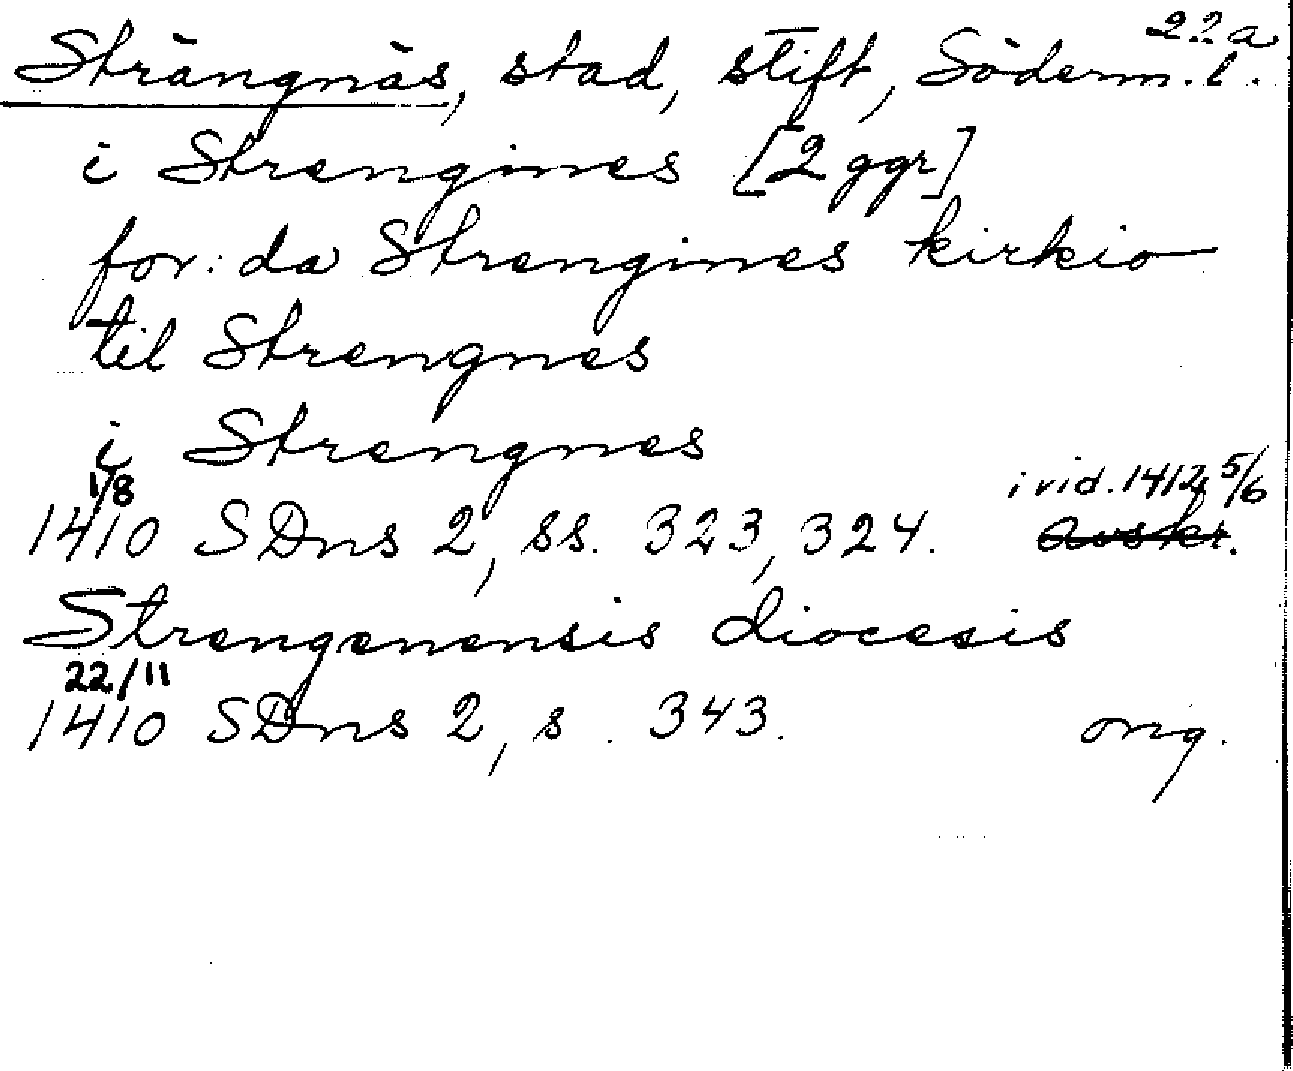 22a
Strängnäs, stad, stift, Söderm. l.
i Strengines [2 ggr]
for: da Strengines kirkio
til Strengnes
i Strengnes
1/8 i vid. 1412 5/6
1410 SDns 2, ss. 323, 324. Avskr.
Strengenensis diocesis
22/11
1410 SDns 2, s. 343. orig.